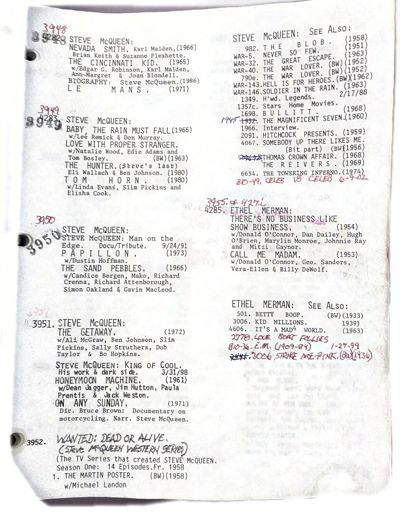 3948
3948
STEVE McQUEEN:
NEVADA SMITH, Karl Malden,(1966)
Brian Keith & Suzanne Pleshette.
THE CINCINNATI KID. (1965)
w/Edgar G. Robinson, Karl Malden,
Ann-Margret & Joan Blondell.
BIOGRAPHY: Steve McQueen.(1986)
LE MANS. (1971)
3949
3949
STEVE McQUEEN:
BABY, THE RAIN MUST FALL.(1965)
w/Lee Remick & Don Murray.
LOVE WITH PROPER STRANGER.
w/Natalie Wood, Edie Adams and
Tom Bosley. (BW)(1963)
THE HUNTER.(Steve's last)
Eli Wallach & Ben Johnson. (1980)
TOM HORN. (1980)
w/Linda Evans, Slim Pickins and
Elisha Cook.
3950
3950
STEVE McQUEEN:
STEVE McQUEEN: Man on the
Edge. Docu/Tribute. 9/24/91
PAPILLON. (1973)
w/Dustin Hoffman.
THE SAND PEBBLES. (1966)
w/Candice Bergen, Mako, Richard
Crenna, Richard Attenborough,
Simon Oakland & Gavin McLeod.
3951. STEVE McQUEEN:
THE GETAWAY. (1972)
w/Ali McGraw, Ben Johnson, Slim
Pickins, Sally Struthers, Dub
Taylor & Bo Hopkins.
STEVE McQUEEN: KING OF COOL.
His work & dark side. 3/31/98
HONEYMOON MACHINE. (1961)
w/Dean Jagger, Jim Hutton, Paula
Prentis & Jack Weston.
ON ANY SUNDAY. (1971)
Dir. Bruce Brown: Documentary on
motorcycling. Narr. Steve McQueen.
3952. WANTED: DEAD OR ALIVE.
(STEVE McQUEEN WESTERN SERIES)
(The TV Series that created STEVE McQUEEN.
Season One: 14 Episodes.Fr. 1958
1. THE MARTIN POSTER. (BW)(1958)
w/Michael Landon
STEVE McQUEEN: SEE ALSO:
982. THE BLOB. (1958)
WAR-5. NEVER SO FEW. (1951)
WAR-32. THE GREAT ESCAPE. (1963)
WAR-40. THE WAR LOVER. (BW)(1952)
790e. THE WAR LOVER. (BW)(1952)
WAR-143.HELL IS FOR HEROES.(BW)(1962)
WAR-146.SOLDIER IN THE RAIN. (1963)
1349. H'wd. Legends. 2/17/88
1357c. Stars Home Movies.
1698. BULLITT. (1968)
THE MAGNIFICENT SEVEN.(1960)
1966. Interview.
2091. HITCHCOCK PRESENTS. (1959)
4067. SOMEBODY UP THERE LIKES ME.
(Bit part) (BW)(1956)
THOMAS CROWN AFFAIR. (1968)
THE REIVERS. (1969)
6654. THE TOWERING INFERNO.(1974)
BIO-49. CELEB VS CELEB 6-9-02
4285. ETHEL MERMAN:
THERE'S NO BUSINESS LIKE
SHOW BUSINESS. (1954)
w/Donald O'Connor, Dan Dailey, Hugh
O'Brien, Marylin Monroe, Johnnie Ray
and Mitzi Gaynor.
CALL ME MADAM. (1953)
w/Donald O'Connor, Geo. Sanders,
Vera-Ellen & Billy DeWolf.
ETHEL MERMAN: SEE ALSO:
501. BETTY BOOP. (BW)(1933)
3006. KID MILLIONS. 1939)
4606. IT'S A MAD⁴ WORLD. (1963)
2778. LOVE BOAT FOLLIES
1-27-99
3006 STRIKE ME PINK. (1936)